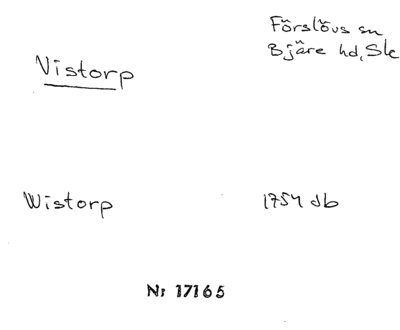 Förslövs sn
Bjäre hd, Sk
Vistorp
Wistorp 1754 db
Nr 17165